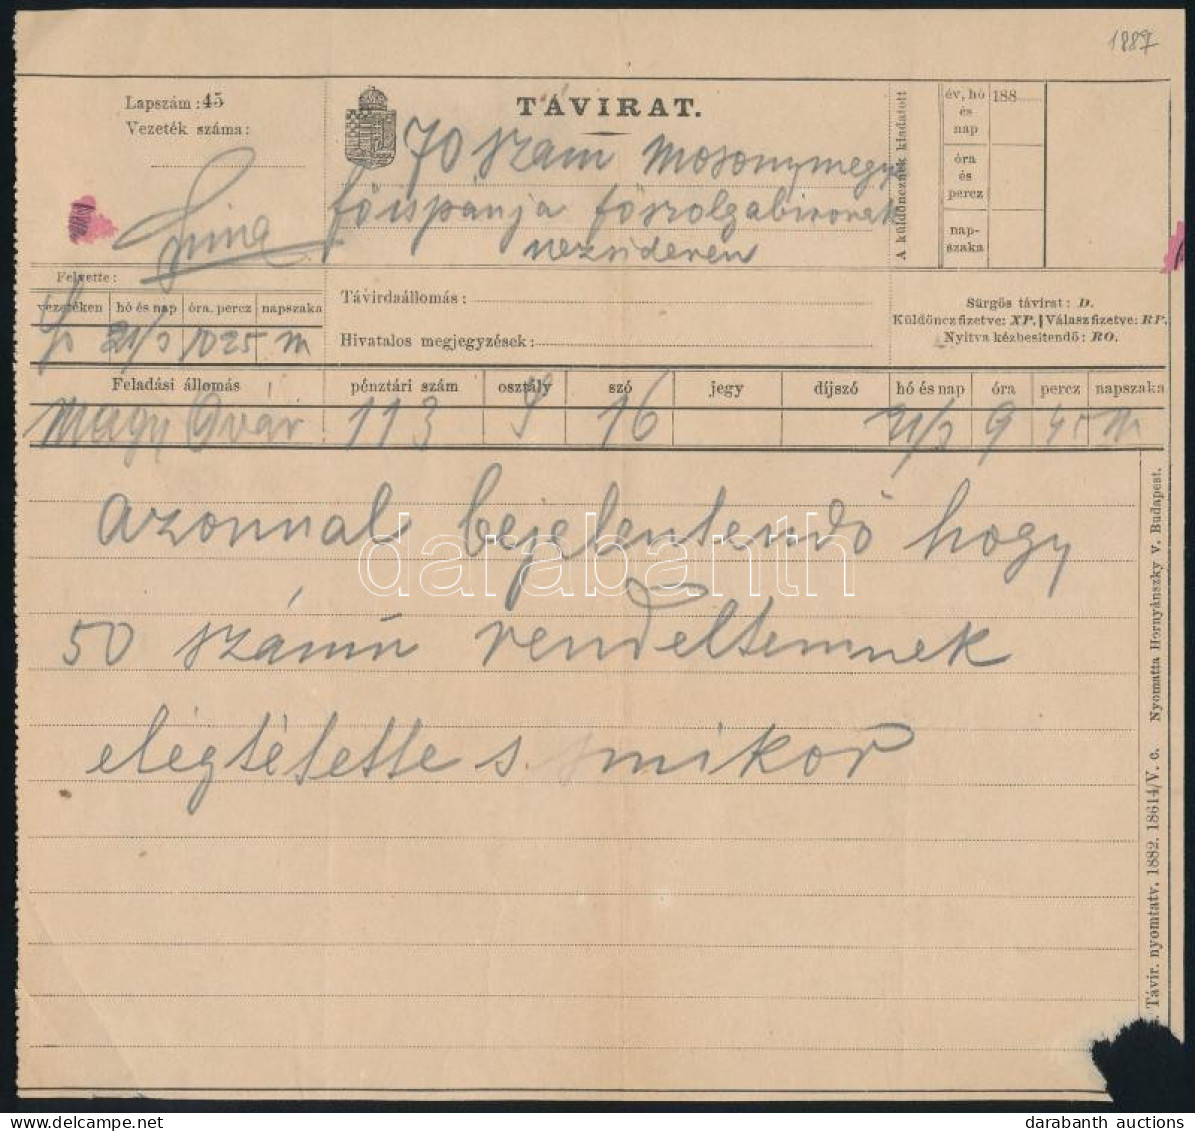 1887
Lapszám: 45
Vezeték száma:
TÁVIRAT.
70 szám Mosonymegye
főispánja főszolgabirónak
nezsideren
A küldöncznek kiadatott
év, hó és nap
188
óra és percz
nap-szaka
Felvette:
vezetéken hó és nap óra, percz napszaka
21/3 10 25 m
Távirdaállomás:
Hivatalos megjegyzések:
Sürgős távirat: D.
Küldöncz fizetve: XP. Válasz fizetve: RP.
Nyitva kézbesitendő: RO.
Feladási állomás pénztári szám osztály szó jegy díjszó hó és nap óra percz napszaka
Magy Ovár 113 S 16 21/3 9 45 m
azonnal bejelentendő hogy
50 számú rendeltemnek
elégtétette s mikor
Távir. nyomtatv. 1882. 18614/V. c. Nyomatta Hornyánszky v. Budapest.
darabanth
darabanth auctions